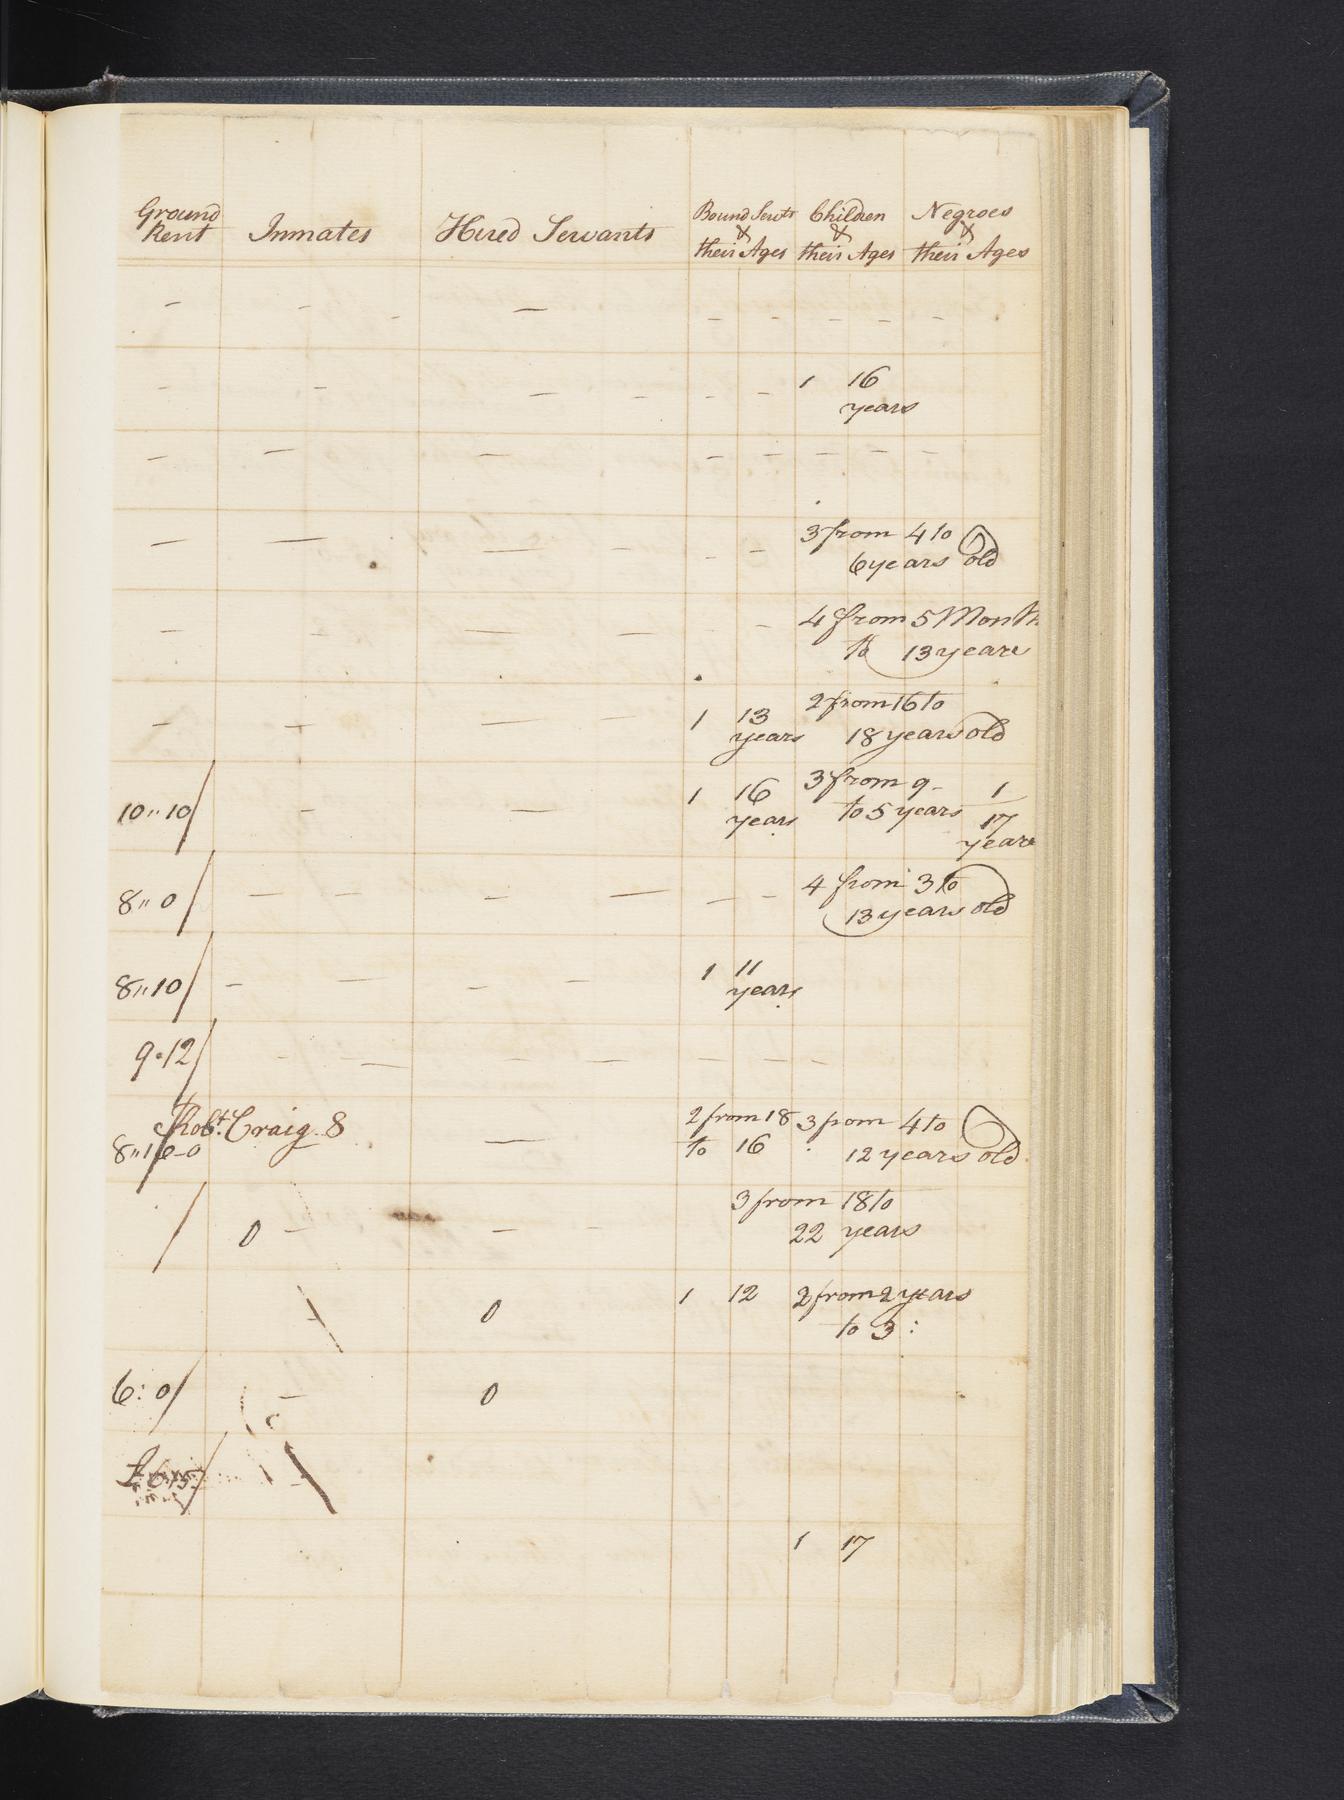 Ground Rent Inmates Hired Servants Bound Servts & their Ages Children & their Ages Negroes & their Ages
- - - - - - - - - -
- - - - - - 1 16
years
- - - - - - - -
- - - - - - 3 from 4 to
6 years old
- - - - - - 4 from 5 Month
to 13 years
- - - - 1 13 years 2 from 16 to
18 years old
10"10/ - - 1 16 years 3 from 9 - to 5 years 1
17
years
8"0/ - - - - - - 4 from 3 to
13 years old
8"10/ - - - - 1 11
years
9"12/ - - - - - - - -
Robt. Craig. 8
8"16-0 - 2 from 18 to 16 3 from 4 to
12 years old
/ 0 - - - 3 from 18 to
22 years
0 1 12 2 from 2 years
to 3 :
6: 0/ - 0
£6"15/
1 17